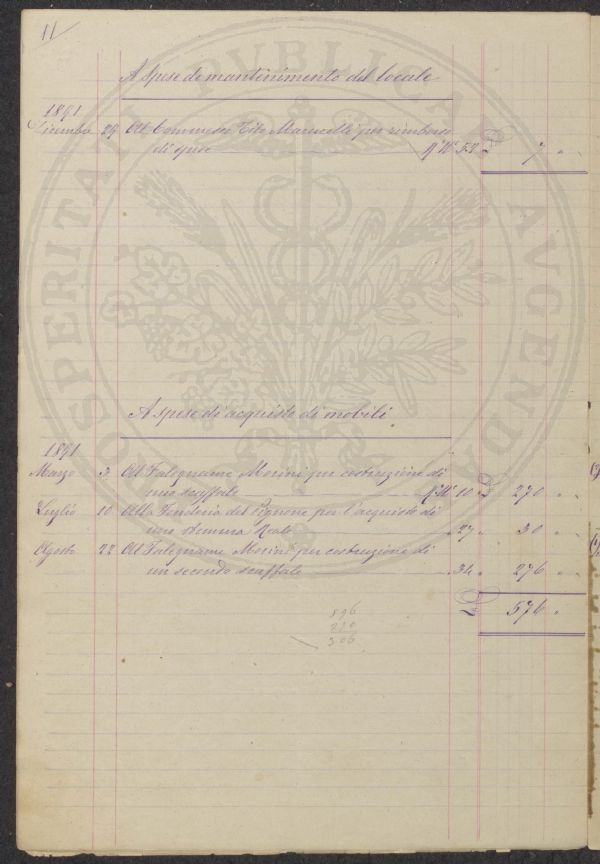 11
A spese di mantenimento del locale
1891
Dicembre 29 Al Commesso Tito Marucelli per rimborso
di spese M.to N.o 52 L. 7 " "
A spese di acquisto di mobili
1891
Marzo 3 Al Falegname Morini per costruzione di
uno scaffale M.to N.o 10 L. 270 " "
Luglio 10 Alla Fonderia del Pignone per l'acquisto di
uno stemma Reale " 27 " 30 " "
Agosto 22 Al Falegname Morini per costruzione di
un secondo scaffale " 34 " 276 " "
L. 576 "
596
290
306
PROSPERITATI PVBLICAE AVGENDAE